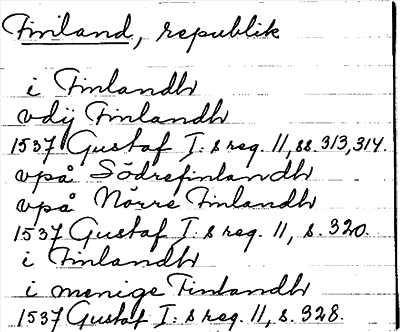 Finland, republik
i Finlandh
vdij Finlandh
1537 Gustaf I:s reg. 11, ss. 313, 314.
vpå Södrefinlandh
vpå Nörre Finlandh
1537 Gustaf I:s reg. 11, s. 320.
i Finlandh
i menige Finlandh
1537 Gustaf I:s reg. 11, s. 328.